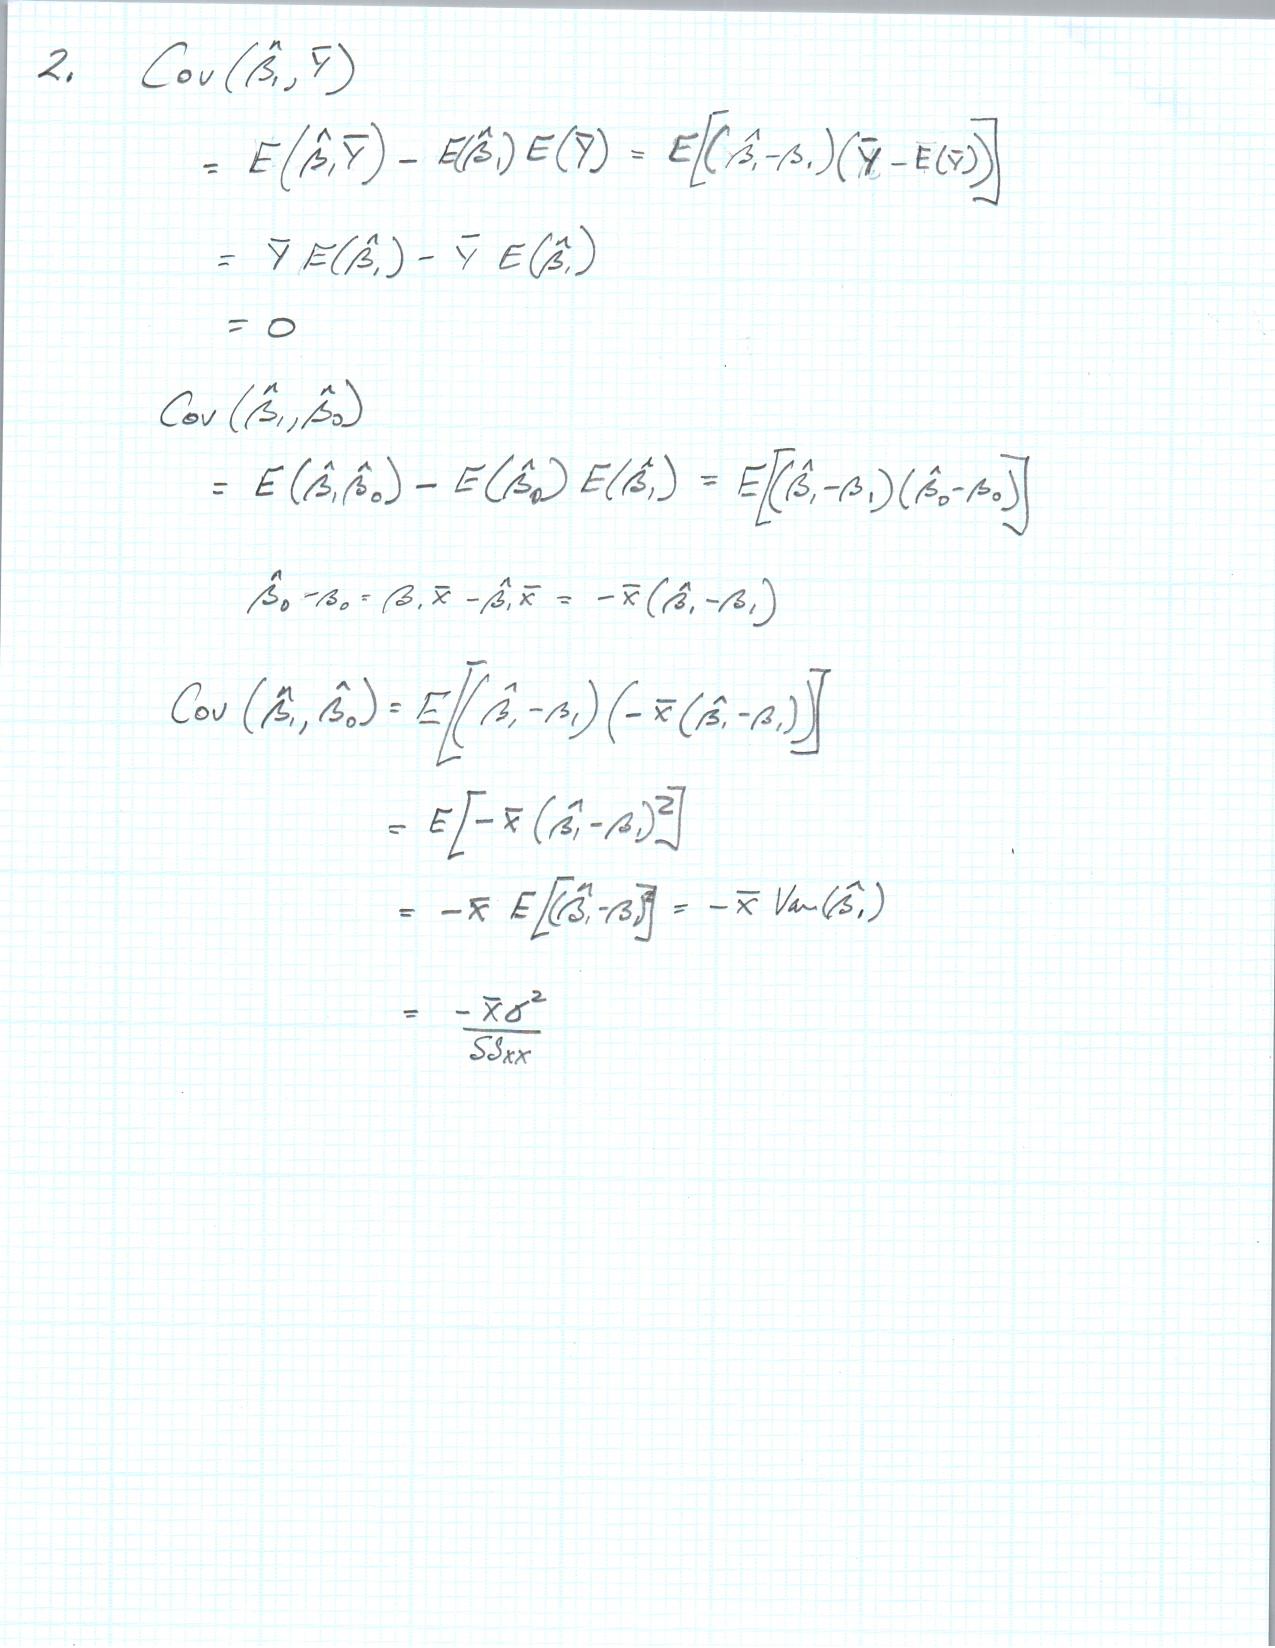 2. Cov(β̂₁, Ȳ)
= E(β̂₁Ȳ) - E(β̂₁)E(Ȳ) = E[(β̂₁-β₁)(Ȳ-E(Ȳ))]
= Ȳ E(β̂₁) - Ȳ E(β̂₁)
= 0
Cov(β̂₁, β̂₀)
= E(β̂₁β̂₀) - E(β̂₀)E(β̂₁) = E[(β̂₁-β₁)(β̂₀-β₀)]
β̂₀-β₀ = β₁x̄ - β̂₁x̄ = -x̄(β̂₁-β₁)
Cov(β̂₁, β̂₀) = E[(β̂₁-β₁)(-x̄(β̂₁-β₁))]
= E[-x̄(β̂₁-β₁)²]
= -x̄ E[(β̂₁-β₁)²] = -x̄ Var(β̂₁)
= -x̄σ²
SSxx